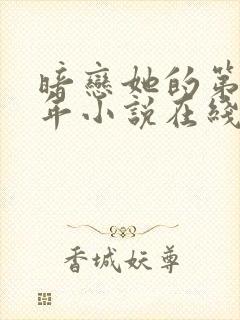 暗戀她的第
年小說在綫
香城妖尊